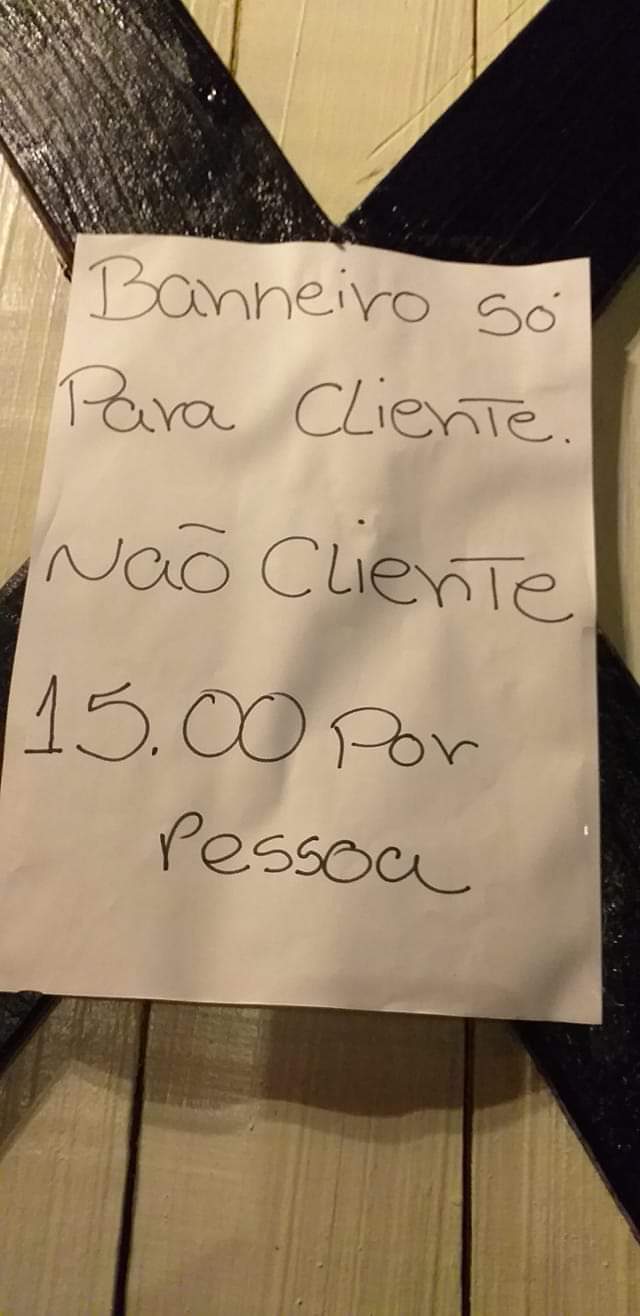 Banheiro só
Para Cliente.
Não Cliente
15.00 Por
Pessoa